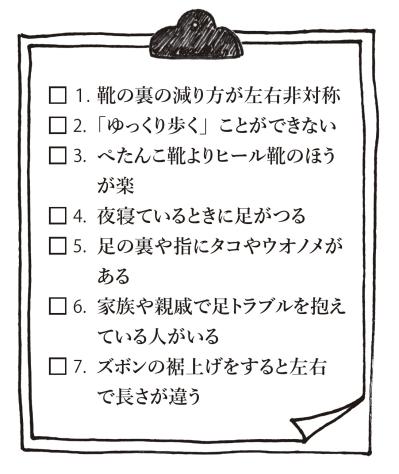 □ 1. 靴の裏の減り方が左右非対称
□ 2. 「ゆっくり歩く」ことができない
□ 3. ぺたんこ靴よりヒール靴のほう
が楽
□ 4. 夜寝ているときに足がつる
□ 5. 足の裏や指にタコやウオノメが
ある
□ 6. 家族や親戚で足トラブルを抱え
ている人がいる
□ 7. ズボンの裾上げをすると左右
で長さが違う